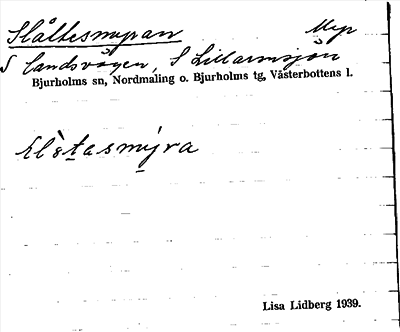 Slåttesmyran Myr
S landsvägen, S Lillarmsjön
Bjurholms sn, Nordmaling o. Bjurholms tg, Västerbottens l.
Lisa Lidberg 1939.